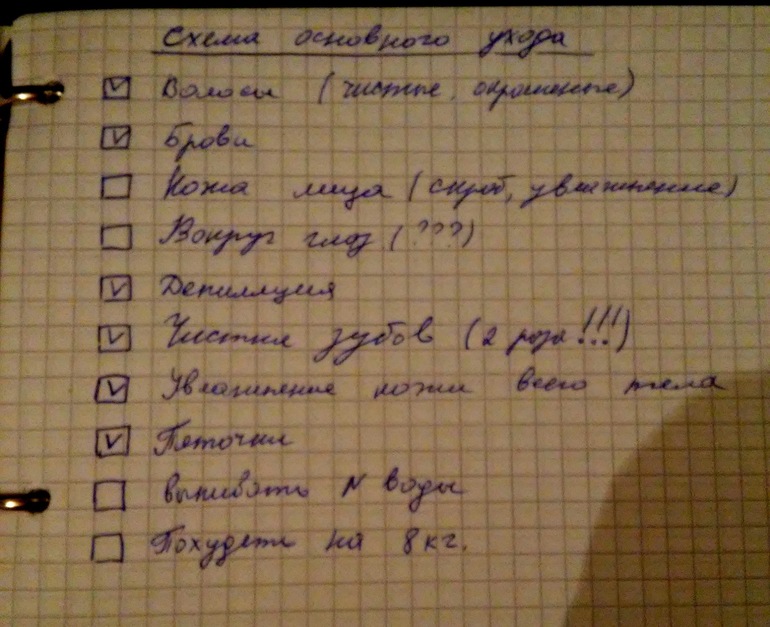 Схема основного ухода
Волосы (чистые, окрашеные)
Брови
Кожа лица (скраб, увлажнение)
Вокруг глаз (???)
Депиляция
Чистка зубов (2 раза!!!)
Увлажнение кожи всего тела
Пяточки
выпивать N воды
Похудеть на 8 кг.